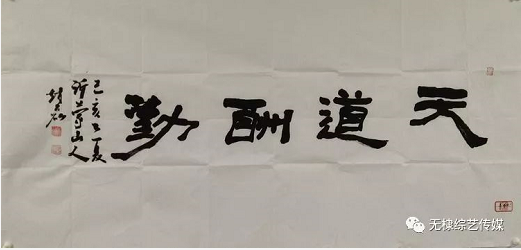 天道酬勤
己亥之夏
沂蒙山人
无棣综艺传媒